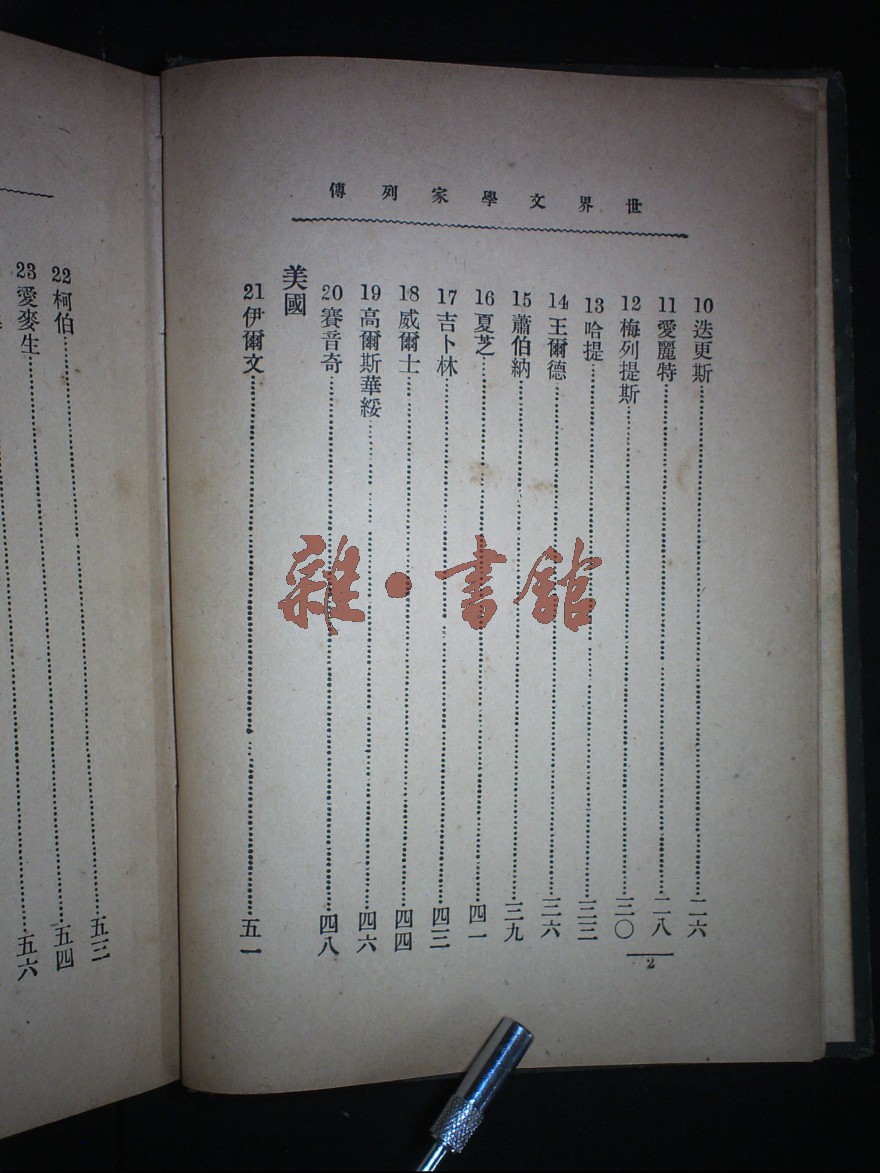 世界文學家列傳
10 迭更斯……二六
11 愛麗特……二八
12 梅列提斯……三〇
13 哈提……三三
14 王爾德……三六
15 蕭伯納……三九
16 夏芝……四一
17 吉卜林……四三
18 威爾士……四四
19 高爾斯華綏……四六
20 賽音奇……四八
美國
21 伊爾文……五一
2
22 柯伯……五三
23 愛麥生……五四
……五六
雜·書館